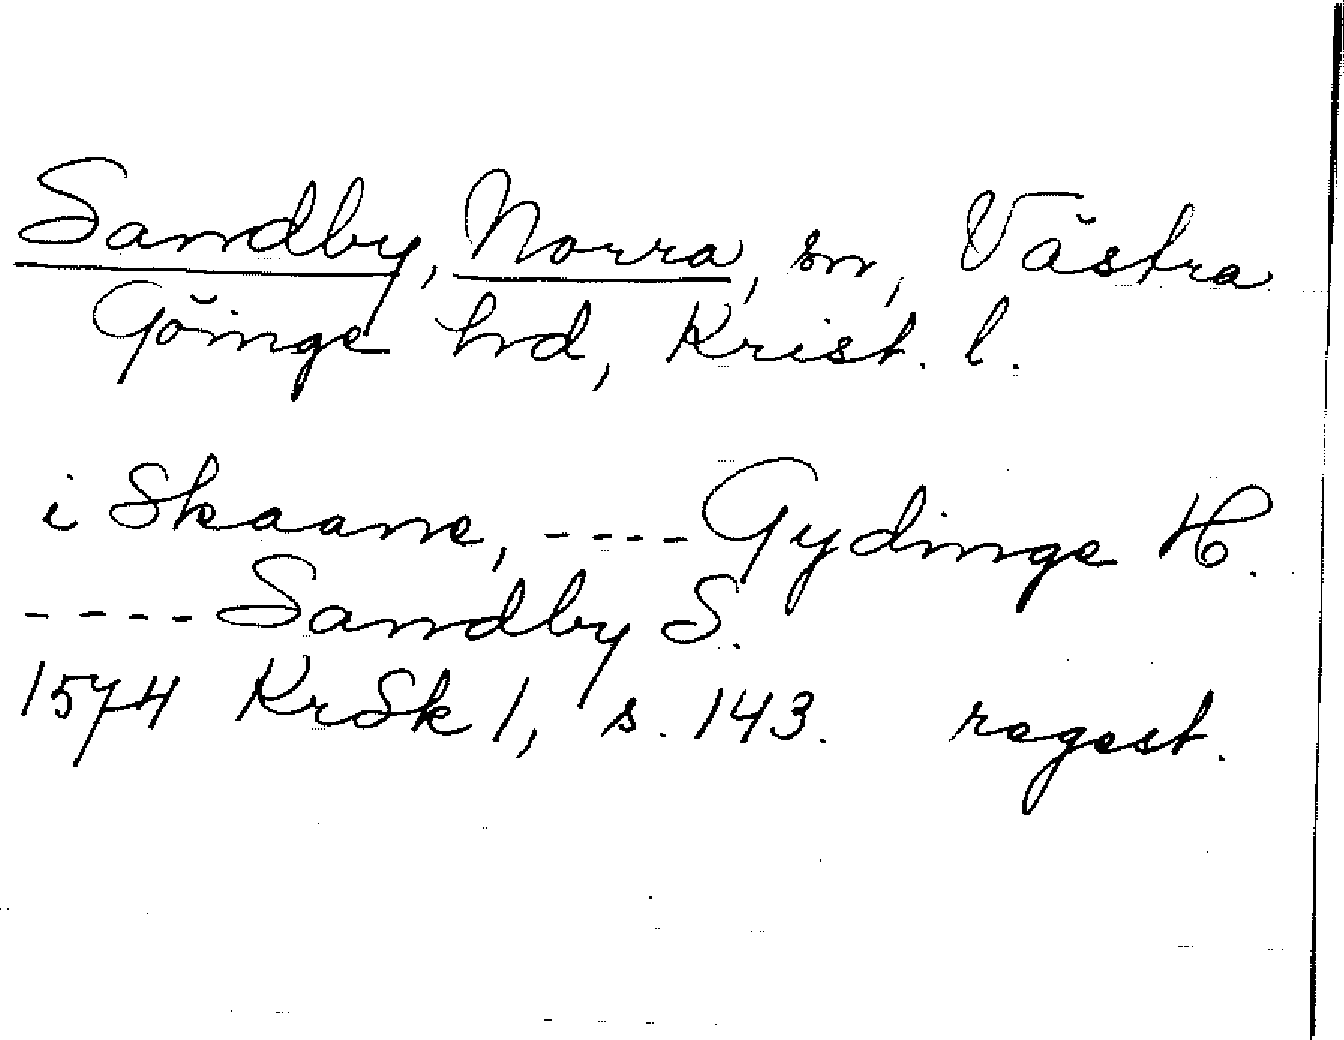 Sandby, Norra, sn, Västra
Göinge hrd, Krist. l.
i Skaane, ---- Gydinge H.
---- Sandby S.
1574 KrSk 1, s. 143. regest.